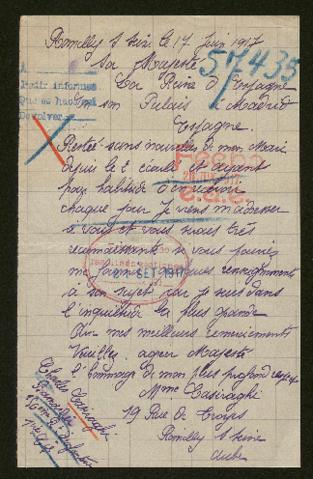 Romilly s seine le 17 Juin 1917
57435
Sa Majesté
La Reine d'Espagne
en son Palais à Madrid
Espagne
Pedir informes
Que es haya
Devolver
Restée sans nouvelles de mon Mari
depuis le 2 écoulé et ayant
pour habitude d'en recevoir
chaque jour Je viens m'adresser
à vous et vous serais très
reconnaissante si vous pouviez
me fournir quelques renseignements
à son sujet car je suis dans
l'inquiétude la plus grande
Avec mes meilleurs remerciements
Veuillez agréer Majesté
l'hommage de mon plus profond respect
Mme Casiraghi
19 Rue de Troyes
Romilly s seine
Aube
21 SET 1917
Charles Casiraghi